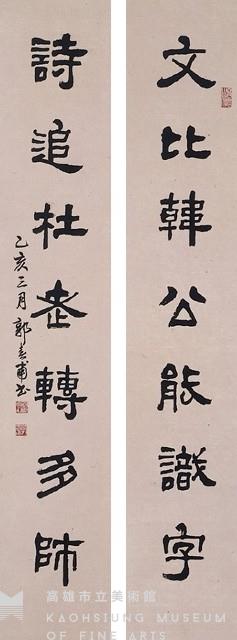 文比韓公能識字
詩追杜老轉多師
乙亥三月郭春甫書
高雄市立美術館
KAOHSIUNG MUSEUM
OF FINE ARTS